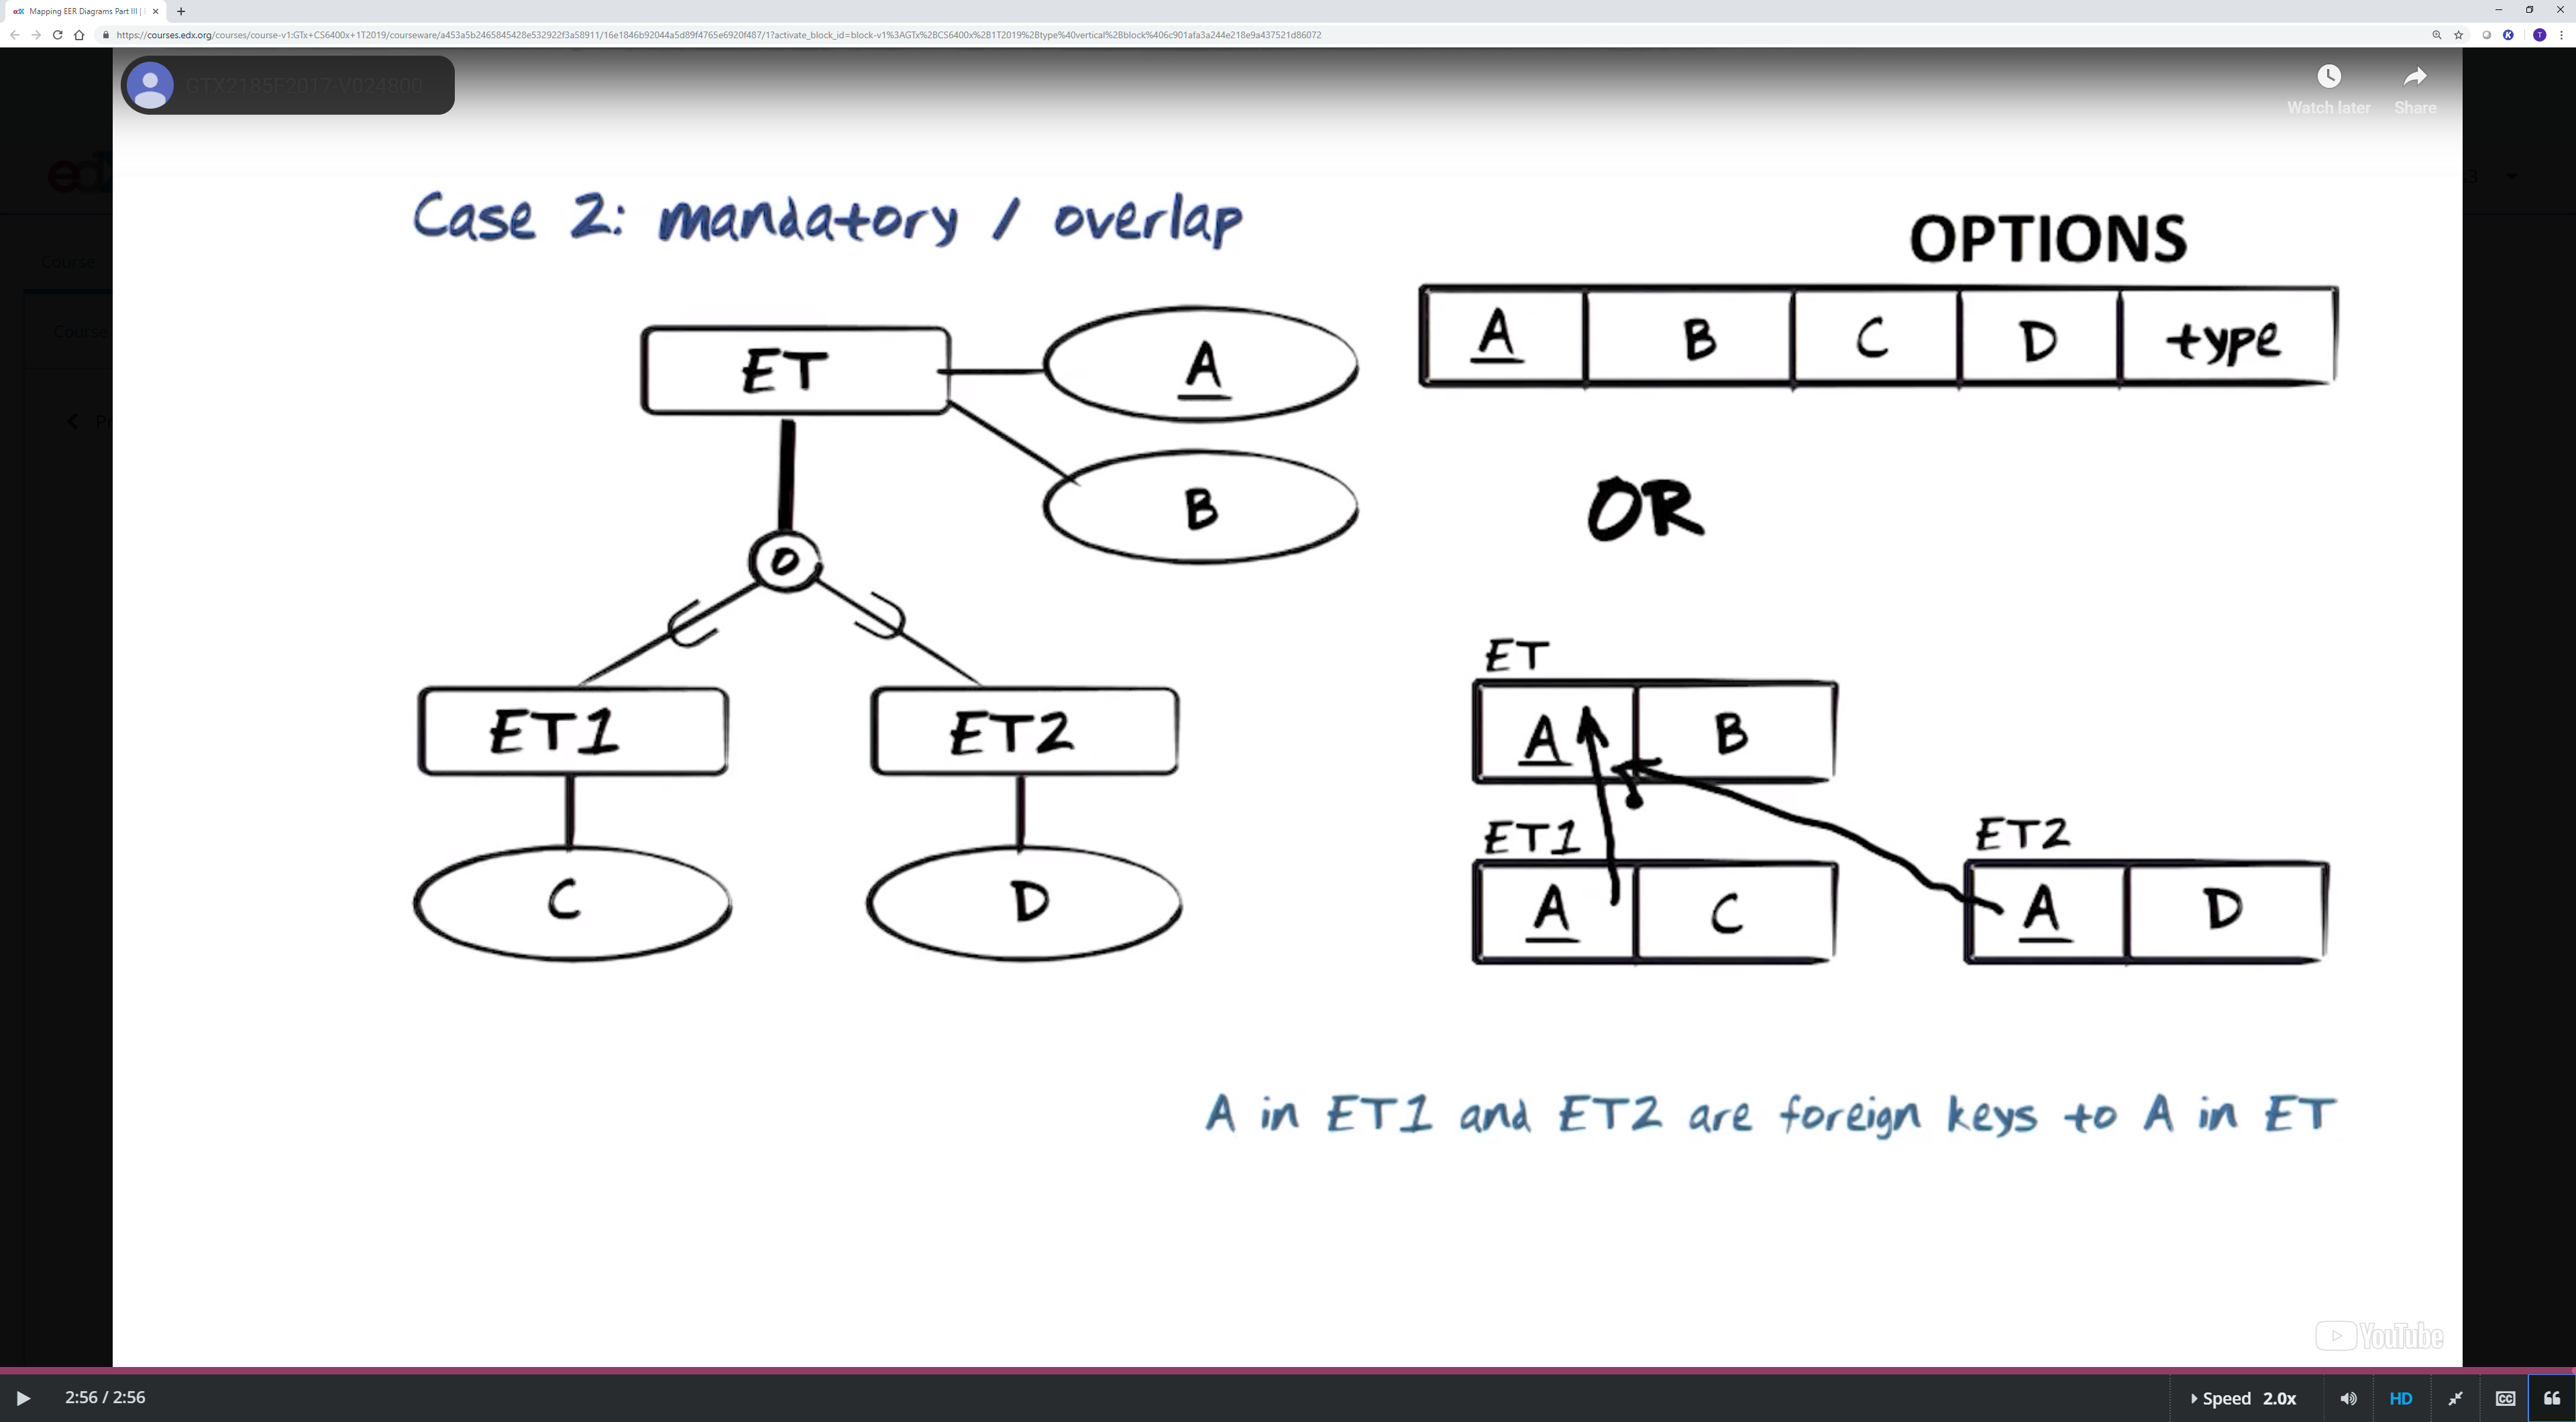 Mapping EER Diagrams Part III |
https://courses.edx.org/courses/course-v1:GTx+CS6400x+1T2019/courseware/a453a5b2465845428e532922f3a58911/16e1846b92044a5d89f4765e6920f487/1?activate_block_id=block-v1%3AGTx%2BCS6400x%2B1T2019%2Btype%40vertical%2Bblock%406c901afa3a244e218e9a437521d86072
GTX2185F2017-V024800
Watch later
Share
Course
Course
Case 2: mandatory / overlap
OPTIONS
ET
A
B
O
ET1
ET2
C
D
A B C D type
OR
ET
A B
ET1
A C
ET2
A D
A in ET1 and ET2 are foreign keys to A in ET
YouTube
2:56 / 2:56
Speed 2.0x
HD
CC